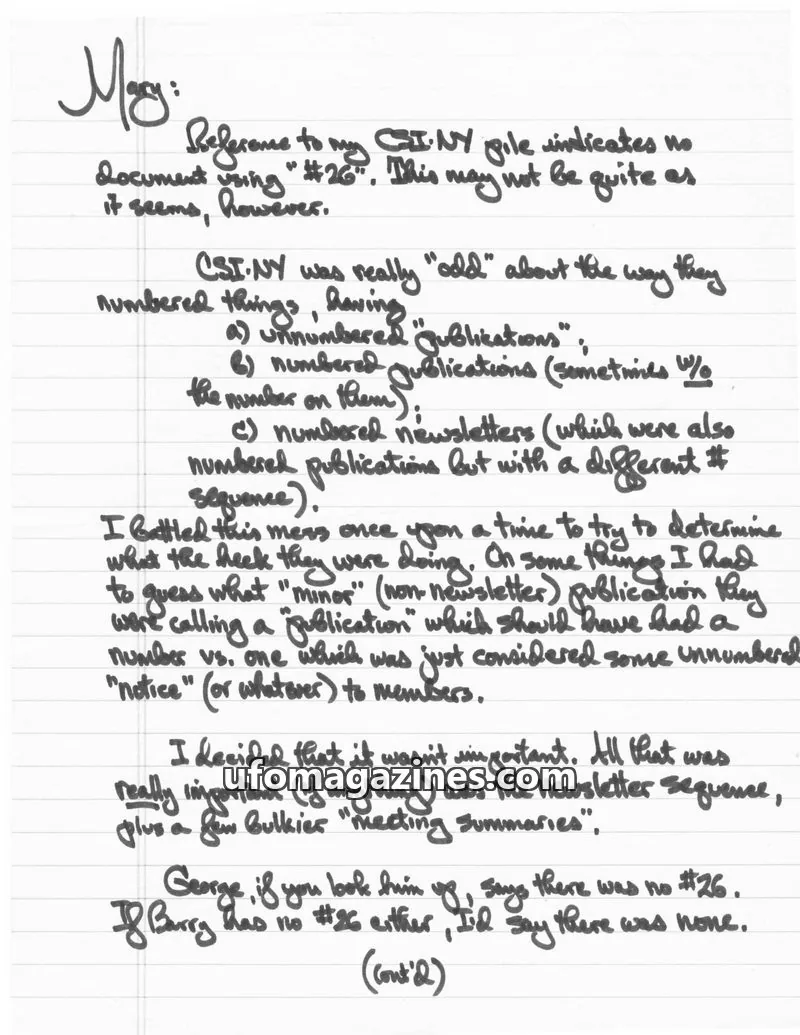 Mary:
Reference to my CSI-NY pile indicates no
document using "#26". This may not be quite as
it seems, however.
CSI-NY was really "odd" about the way they
numbered things, having
a) unnumbered "publications";
b) numbered publications (sometimes w/o
the number on them);
c) numbered newsletters (which were also
numbered publications but with a different #
sequence).
I battled this mess once upon a time to try to determine
what the heck they were doing. On some things I had
to guess what "minor" (non-newsletter) publication they
were calling a "publication" which should have had a
number vs. one which was just considered some unnumbered
"notice" (or whatever) to members.
I decided that it wasn't important. All that was
ufomagazines.com
really important was the newsletter sequence,
plus a few bulkier "meeting summaries".
George, if you look him up, says there was no #26.
If Barry has no #26 either, I'd say there was none.
(cont'd)